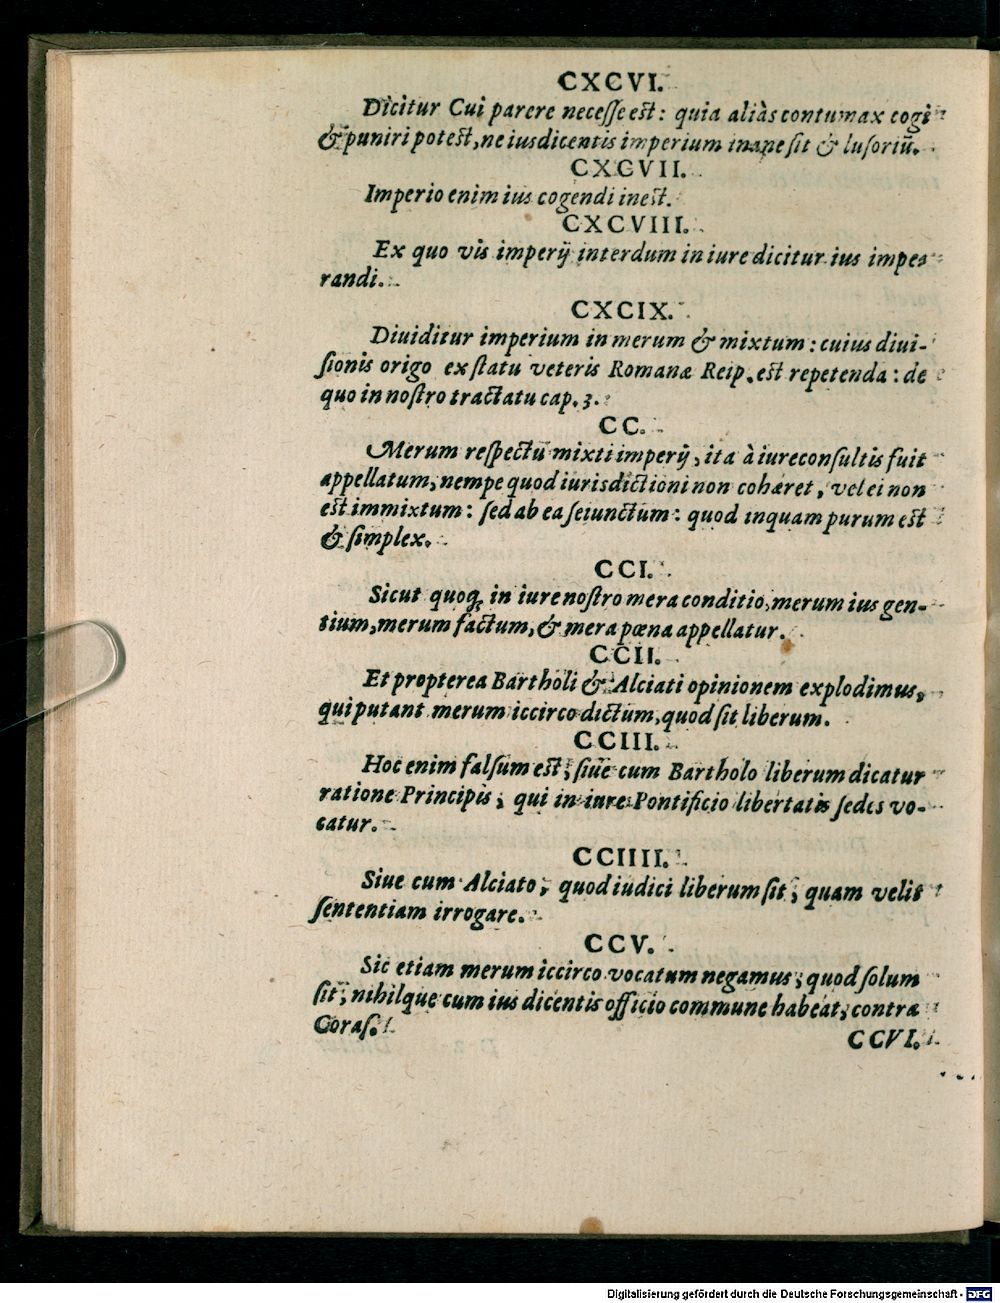 CXCVI.
Dicitur Cui parere necesse est: quia aliàs contumax cogi
& puniri potest, ne ius dicentis imperium inane sit & lusoriū.
CXCVII.
Imperio enim ius cogendi inest.
CXCVIII.
Ex quo vis imperij interdum in iure dicitur ius impe-
randi.
CXCIX.
Diuiditur imperium in merum & mixtum: cuius diui-
sionis origo ex statu veteris Romanæ Reip. est repetenda: de
quo in nostro tractatu cap. 3.
CC.
Merum respectu mixti imperij, ita à iureconsultis fuit
appellatum, nempe quod iurisdictioni non cohæret, vel ei non
est immixtum: sed ab ea seiunctum: quod inquam purum est
& simplex.
CCI.
Sicut quoq; in iure nostro mera conditio, merum ius gen-
tium, merum factum, & mera pœna appellatur.
CCII.
Et propterea Bartholi & Alciati opinionem explodimus,
qui putant merum iccirco dictum, quod sit liberum.
CCIII.
Hoc enim falsum est, siue cum Bartholo liberum dicatur
ratione Principis, qui in iure Pontificio libertatis sedes vo-
catur.
CCIIII.
Siue cum Alciato, quod iudici liberum sit, quam velit
sententiam irrogare.
CCV.
Sic etiam merum iccirco vocatum negamus, quod solum
sit, nihilque cum ius dicentis officio commune habeat, contra
Coras.
CCVI.
Digitalisierung gefördert durch die Deutsche Forschungsgemeinschaft - DFG